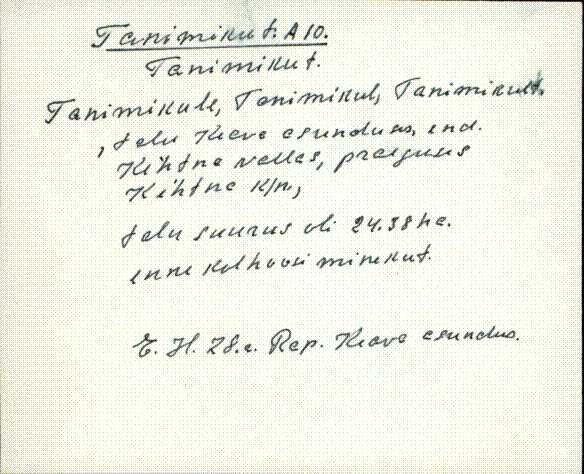 Tanimikut. A 10.
Tanimikut.
Tanimikule, Tanimikul, Tanimikult.
, talu Keava asundus, end.
Kehtna vallas, praeguses
Kehtna k/n.,
talu suurus oli 24.38 ha.
enne kolhoosi minekut.
E. H. 28.a. Rap. Keava asundus.